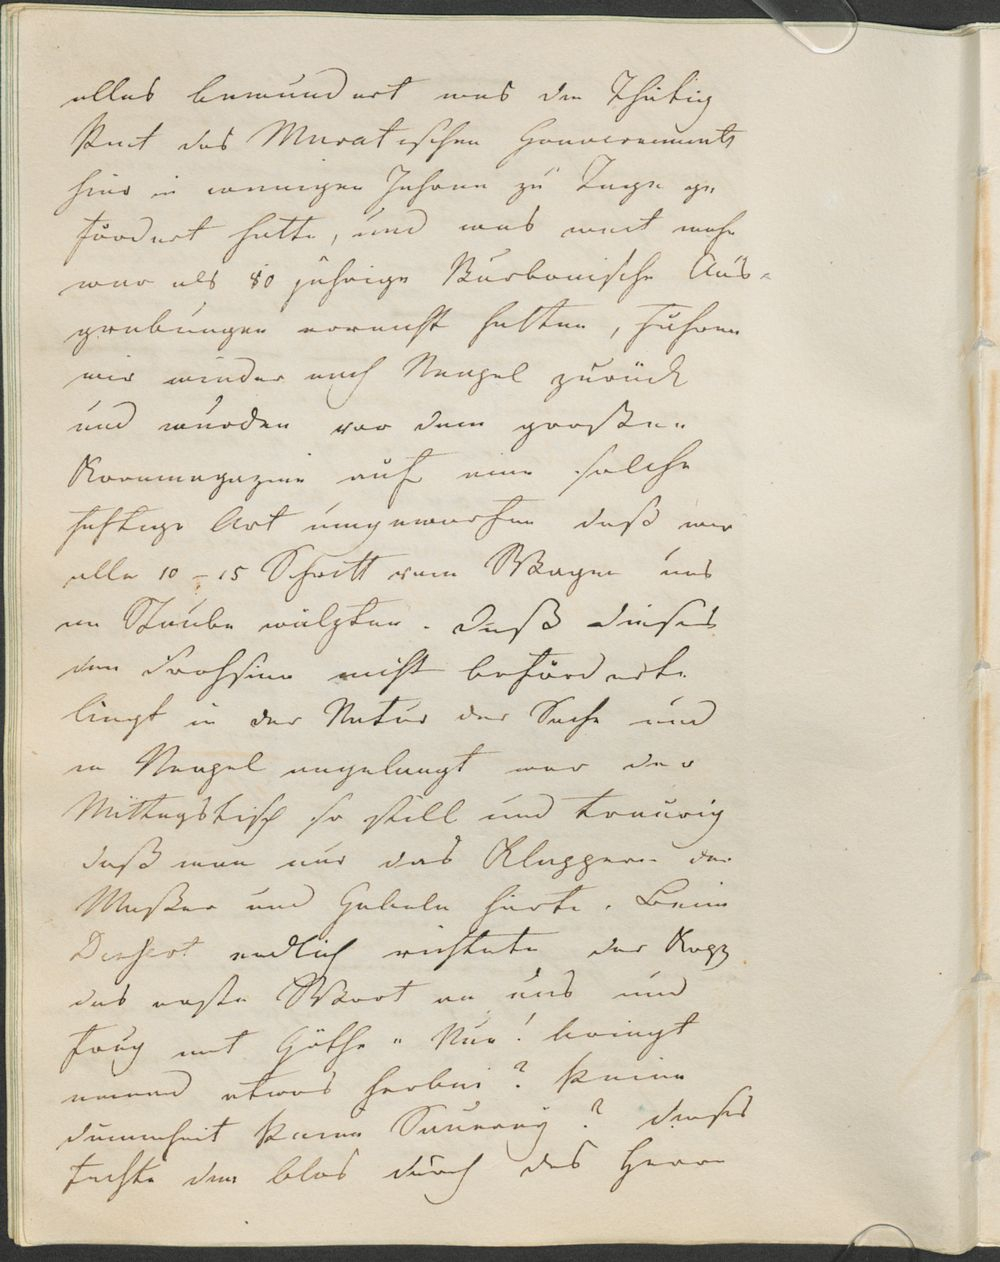 alles bewundert was die Thätig
keit des Muratischen Gouvernements
hier in wenigen Jahren zu Tage ge
fördert hatte, und was weit mehr
war als 80 jährige Burbonische Aus-
grabungen erreicht hatten, fuhren
wir wieder nach Neapel zurück
und wurden vor dem großen
Kornmagazine auf eine solche
heftige Art umgeworfen daß wir
alle 10 – 15 Schritt vom Wagen uns
im Staube wälzten. Daß dieses
den Frohsinn nicht beförderte
liegt in der Natur der Sache und
in Neapel angelangt war der
Mittagstisch so still und traurig
daß man nur das Klappern der
Meßer und Gabeln hörte. Beim
Dessert endlich richtete der
das erste Wort an uns und
frug mit Göthe „ Nun! bringt
niemand etwas herbei? keine
dummheit keine Sauerey? dieses
fachte den blos durch des Herrn